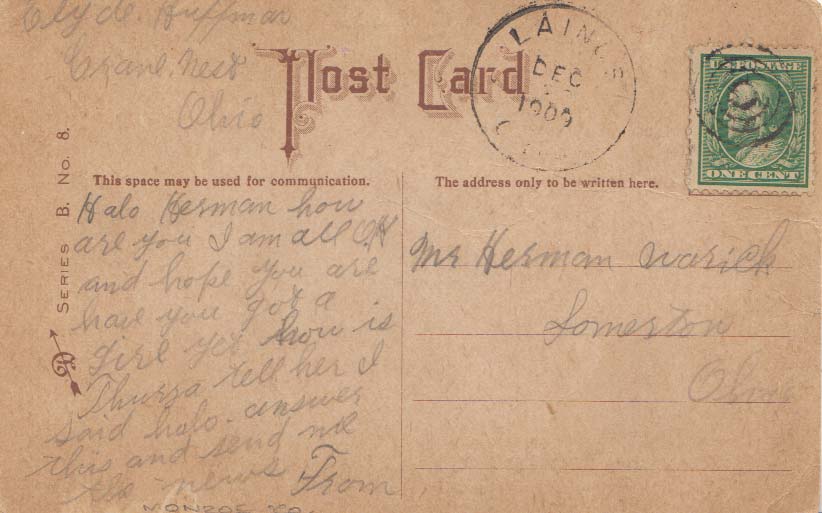 Clyde Huffman
Crane Nest
Ohio
Post Card
LAINGS
DEC
1909
U.S. POSTAGE
ONE CENT
SERIES B. No. 8.
This space may be used for communication.
The address only to be written here.
Halo Herman how
are you I am all OK
and hope you are
have you got a
girl yet how is
Thurza tell her I
said halo. answer
this and send me
the news From
Mr Herman Warick
Somerton
Ohio
MONROE CO.